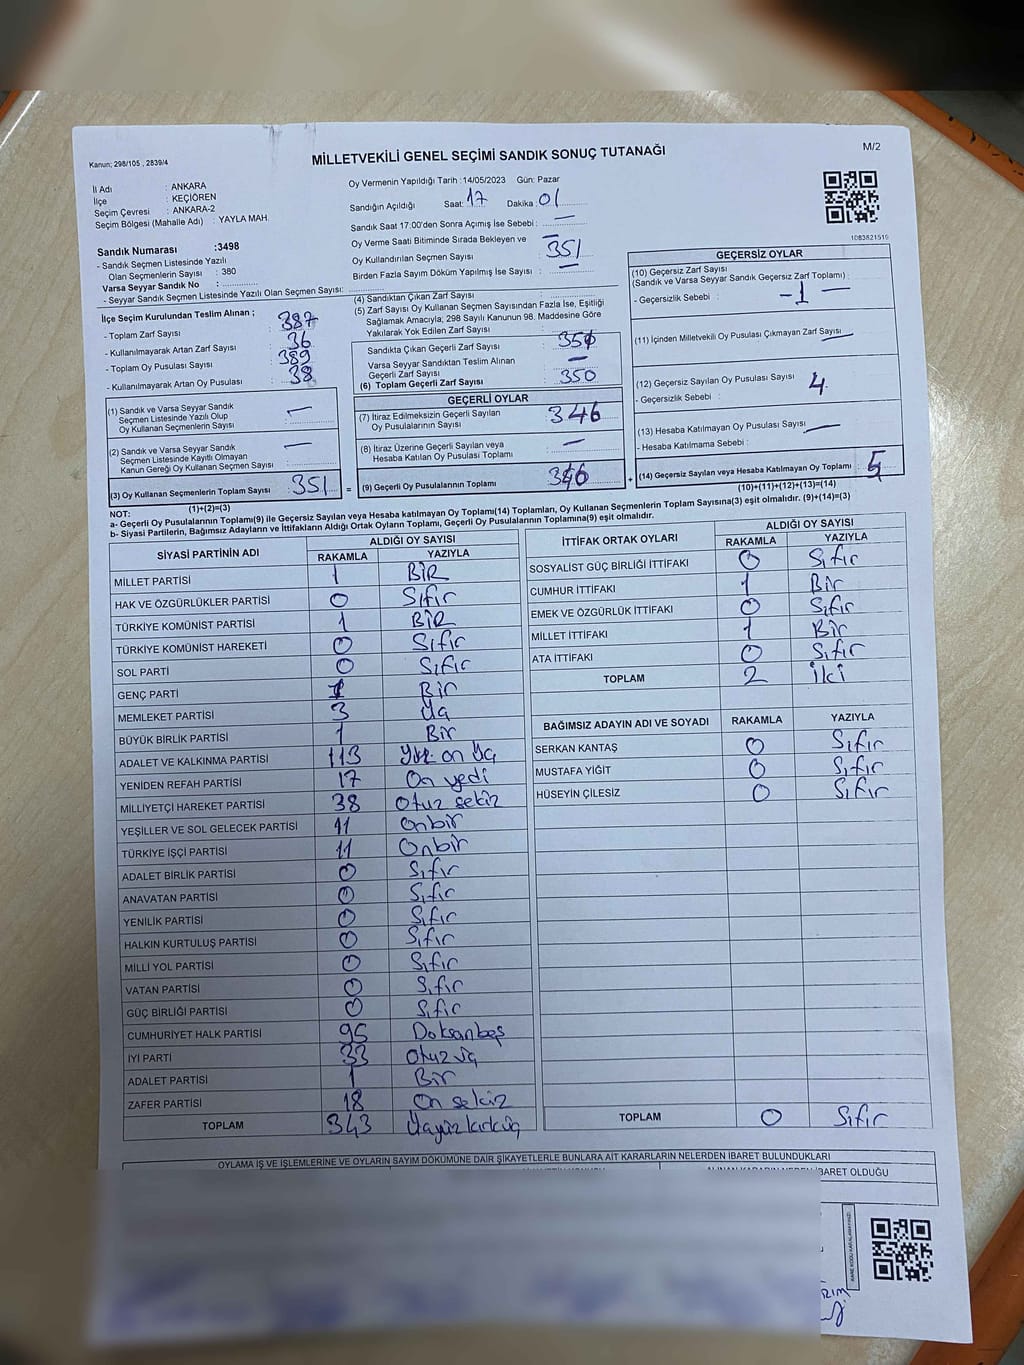 Kanun; 298/105 , 2839/4
MİLLETVEKİLİ GENEL SEÇİMİ SANDIK SONUÇ TUTANAĞI
M/2
İl Adı : ANKARA
İlçe : KEÇİÖREN
Seçim Çevresi : ANKARA-2
Seçim Bölgesi (Mahalle Adı) : YAYLA MAH.
Sandık Numarası :3498
- Sandık Seçmen Listesinde Yazılı
Olan Seçmenlerin Sayısı : 380
Varsa Seyyar Sandık No :
- Seyyar Sandık Seçmen Listesinde Yazılı Olan Seçmen Sayısı:
Oy Vermenin Yapıldığı Tarih :14/05/2023 Gün: Pazar
Sandığın Açıldığı Saat: 17 Dakika: 01
Sandık Saat 17:00'den Sonra Açımış İse Sebebi : —
Oy Verme Saati Bitiminde Sırada Bekleyen ve
Oy Kullandırılan Seçmen Sayısı : 351
Birden Fazla Sayım Döküm Yapılmış İse Sayısı : —
1083821516
İlçe Seçim Kurulundan Teslim Alınan ;
- Toplam Zarf Sayısı : 387
- Kullanılmayarak Artan Zarf Sayısı : 36
- Toplam Oy Pusulası Sayısı : 389
- Kullanılmayarak Artan Oy Pusulası : 38
(1) Sandık ve Varsa Seyyar Sandık
Seçmen Listesinde Yazılı Olup
Oy Kullanan Seçmenlerin Sayısı : —
(2) Sandık ve Varsa Seyyar Sandık
Seçmen Listesinde Kayıtlı Olmayan
Kanun Gereği Oy Kullanan Seçmen Sayısı : —
(3) Oy Kullanan Seçmenlerin Toplam Sayısı : 351
(1)+(2)=(3)
(4) Sandıktan Çıkan Zarf Sayısı :
(5) Zarf Sayısı Oy Kullanan Seçmen Sayısından Fazla İse, Eşitliği
Sağlamak Amacıyla; 298 Sayılı Kanunun 98. Maddesine Göre
Yakılarak Yok Edilen Zarf Sayısı :
Sandıkta Çıkan Geçerli Zarf Sayısı : 350
Varsa Seyyar Sandıktan Teslim Alınan
Geçerli Zarf Sayısı : —
(6) Toplam Geçerli Zarf Sayısı : 350
GEÇERLİ OYLAR
(7) İtiraz Edilmeksizin Geçerli Sayılan
Oy Pusulalarının Sayısı : 346
(8) İtiraz Üzerine Geçerli Sayılan veya
Hesaba Katılan Oy Pusulası Toplamı : —
= (9) Geçerli Oy Pusulalarının Toplamı : 346 +
GEÇERSİZ OYLAR
(10) Geçersiz Zarf Sayısı
(Sandık ve Varsa Seyyar Sandık Geçersiz Zarf Toplamı) :
- Geçersizlik Sebebi : -1 —
(11) İçinden Milletvekili Oy Pusulası Çıkmayan Zarf Sayısı: —
(12) Geçersiz Sayılan Oy Pusulası Sayısı : 4
- Geçersizlik Sebebi :
(13) Hesaba Katılmayan Oy Pusulası Sayısı : —
- Hesaba Katılmama Sebebi :
(14) Geçersiz Sayılan veya Hesaba Katılmayan Oy Toplamı : 5
(10)+(11)+(12)+(13)=(14)
NOT:
a- Geçerli Oy Pusulalarının Toplamı(9) ile Geçersiz Sayılan veya Hesaba Katılmayan Oy Toplamı(14) Toplamları, Oy Kullanan Seçmenlerin Toplam Sayısına(3) eşit olmalıdır. (9)+(14)=(3)
b- Siyasi Partilerin, Bağımsız Adayların ve İttifakların Aldığı Ortak Oyların Toplamı, Geçerli Oy Pusulalarının Toplamına(9) eşit olmalıdır.
SİYASİ PARTİNİN ADI ALDIĞI OY SAYISI
RAKAMLA YAZIYLA
MİLLET PARTİSİ 1 BİR
HAK VE ÖZGÜRLÜKLER PARTİSİ 0 Sıfır
TÜRKİYE KOMÜNİST PARTİSİ 1 BİR
TÜRKİYE KOMÜNİST HAREKETİ 0 Sıfır
SOL PARTİ 0 Sıfır
GENÇ PARTİ 1 Bir
MEMLEKET PARTİSİ 3 Üç
BÜYÜK BİRLİK PARTİSİ 1 Bir
ADALET VE KALKINMA PARTİSİ 113 Yüz on üç
YENİDEN REFAH PARTİSİ 17 On yedi
MİLLİYETÇİ HAREKET PARTİSİ 38 Otuz sekiz
YEŞİLLER VE SOL GELECEK PARTİSİ 11 Onbir
TÜRKİYE İŞÇİ PARTİSİ 11 Onbir
ADALET BİRLİK PARTİSİ 0 Sıfır
ANAVATAN PARTİSİ 0 Sıfır
YENİLİK PARTİSİ 0 Sıfır
HALKIN KURTULUŞ PARTİSİ 0 Sıfır
MİLLİ YOL PARTİSİ 0 Sıfır
VATAN PARTİSİ 0 Sıfır
GÜÇ BİRLİĞİ PARTİSİ 0 Sıfır
CUMHURİYET HALK PARTİSİ 95 Doksanbeş
İYİ PARTİ 33 Otuz üç
ADALET PARTİSİ 1 Bir
ZAFER PARTİSİ 18 On sekiz
TOPLAM 343 Üçyüzkırküç
İTTİFAK ORTAK OYLARI ALDIĞI OY SAYISI
RAKAMLA YAZIYLA
SOSYALİST GÜÇ BİRLİĞİ İTTİFAKI 0 Sıfır
CUMHUR İTTİFAKI 1 Bir
EMEK VE ÖZGÜRLÜK İTTİFAKI 0 Sıfır
MİLLET İTTİFAKI 1 Bir
ATA İTTİFAKI 0 Sıfır
TOPLAM 2 İki
BAĞIMSIZ ADAYIN ADI VE SOYADI RAKAMLA YAZIYLA
SERKAN KANTAŞ 0 Sıfır
MUSTAFA YİĞİT 0 Sıfır
HÜSEYİN ÇİLESİZ 0 Sıfır
TOPLAM 0 Sıfır
OYLAMA İŞ VE İŞLEMLERİNE VE OYLARIN SAYIM DÖKÜMÜNE DAİR ŞİKAYETLERLE BUNLARA AİT KARARLARIN NELERDEN İBARET BULUNDUKLARI
İBARET OLDUĞU